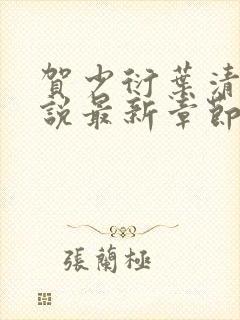 賀少衍葉清
說最新章節
張蘭極